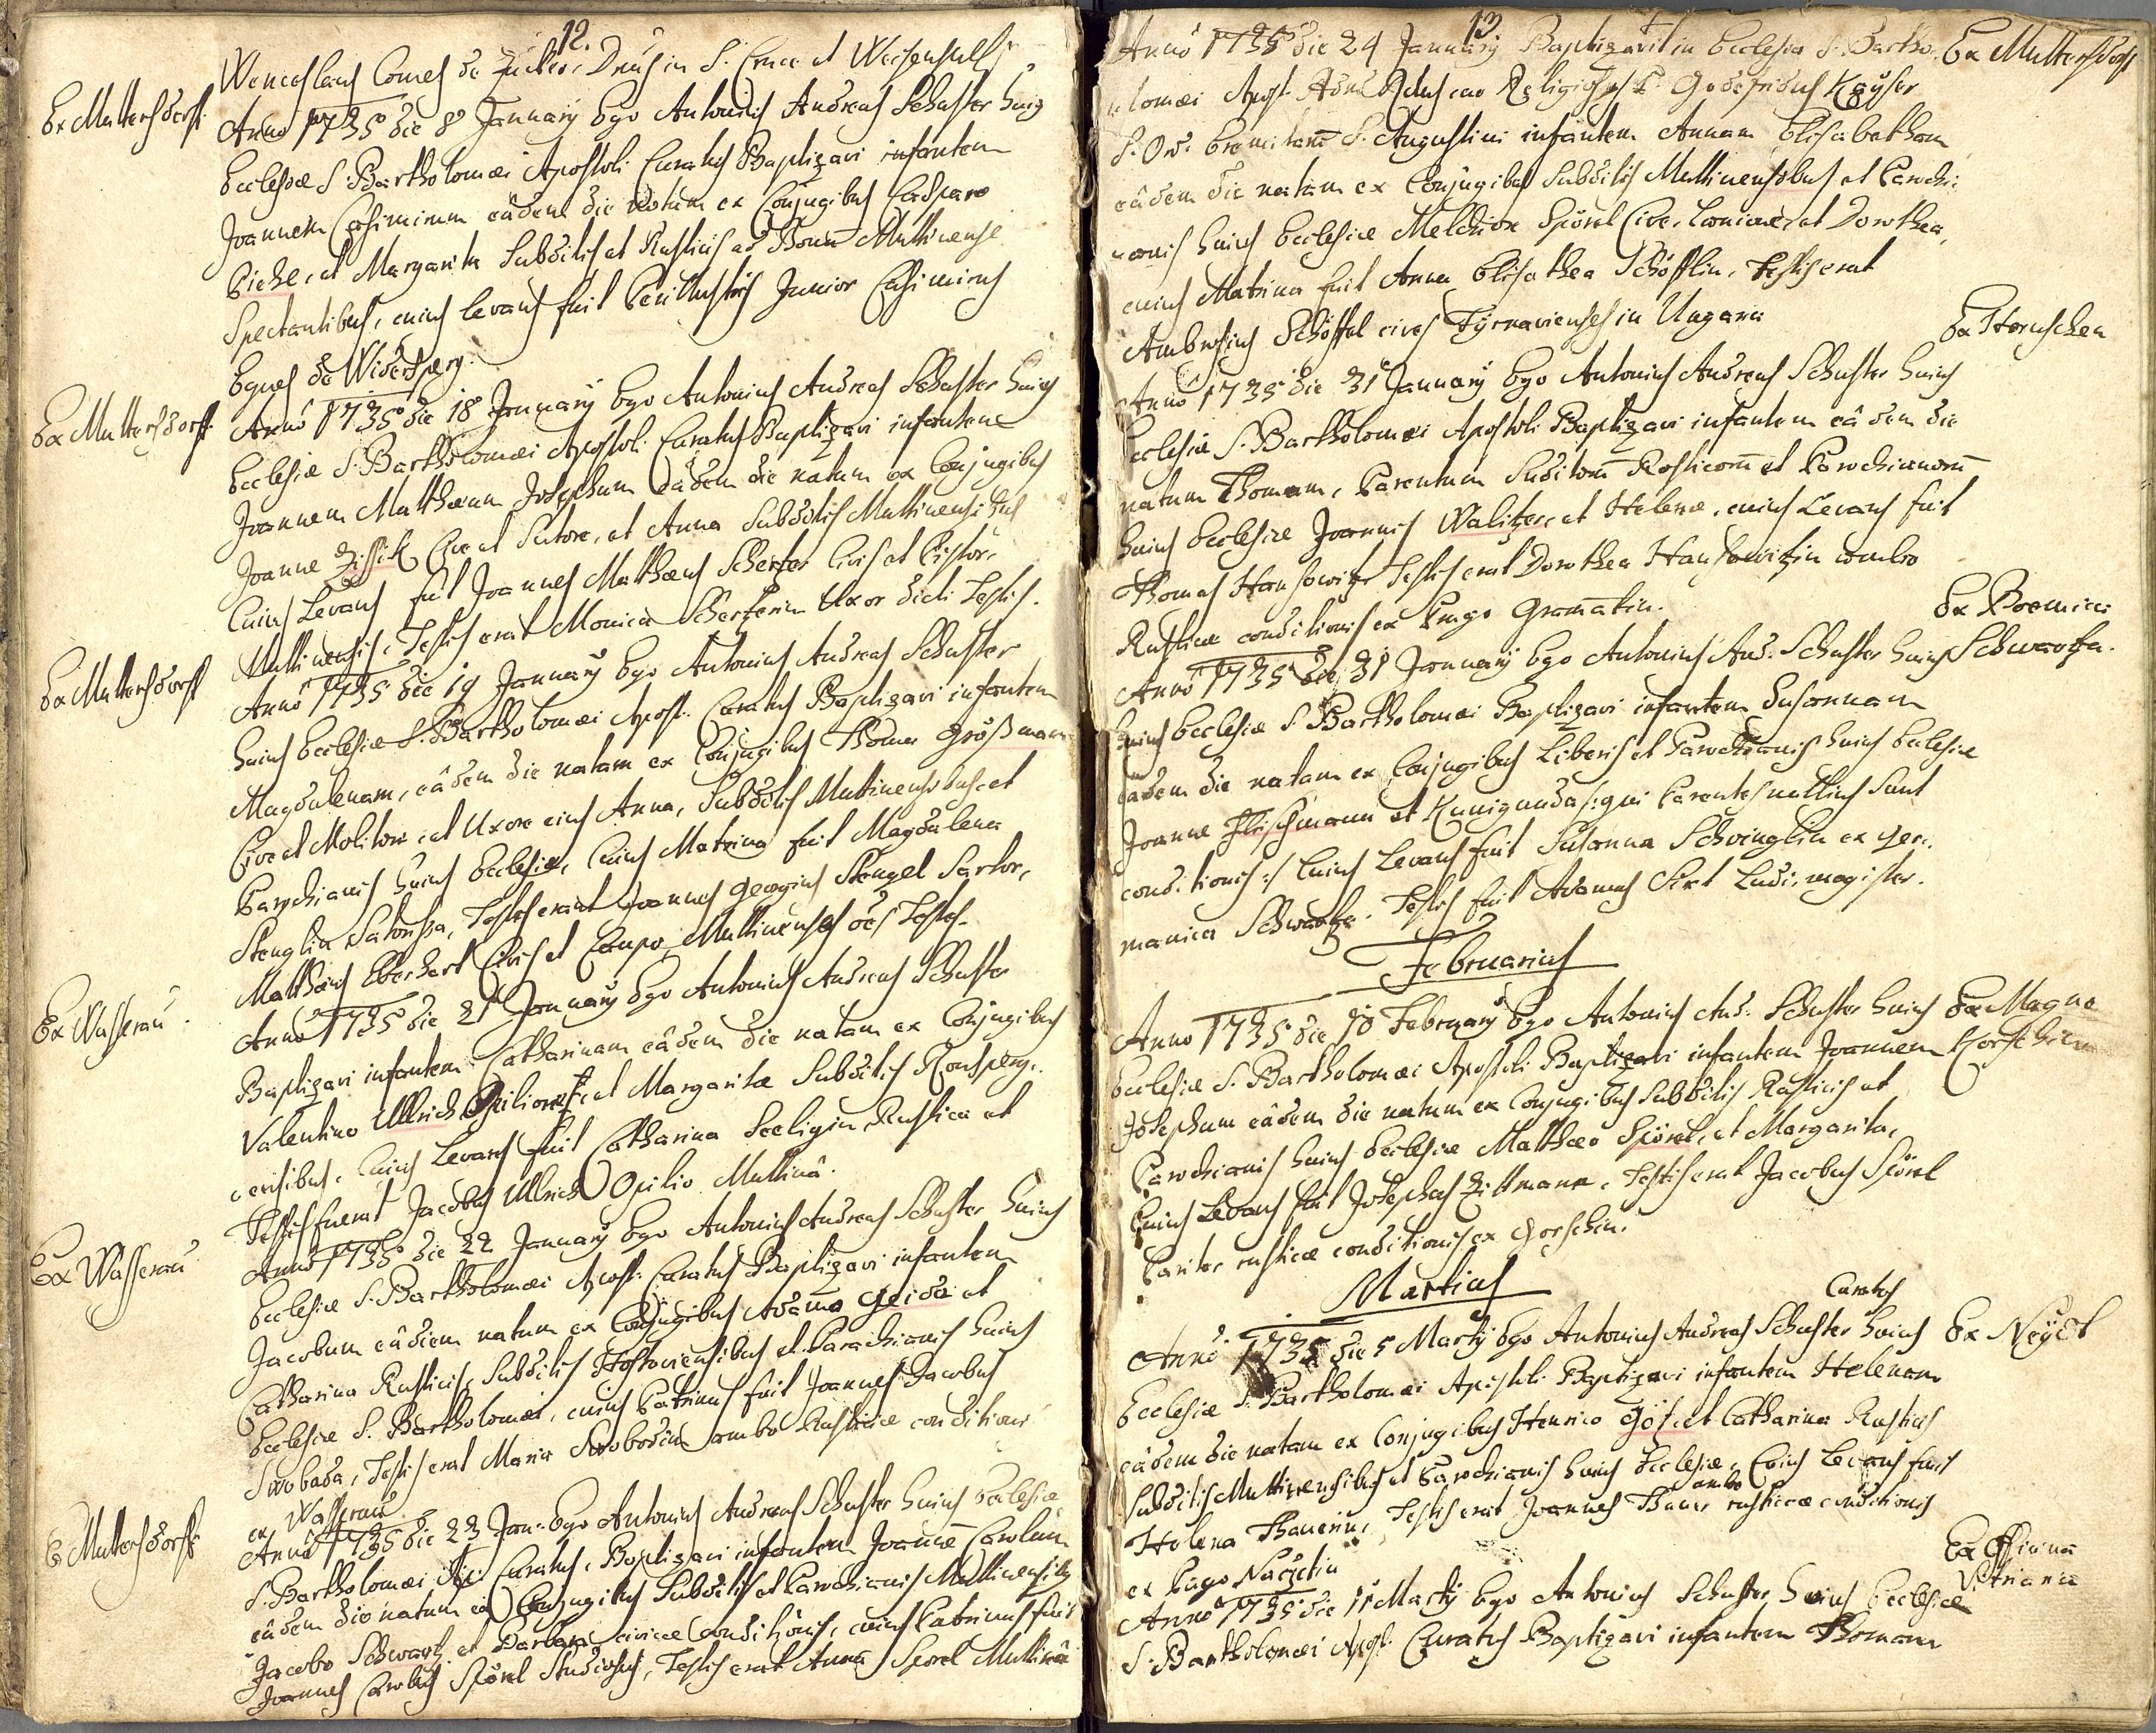 12.
Wenceslaus Comes de Zucker, Dnus in S. Cruce et Weisensulz
Ex Muttersdorf.
Anno 1735 die 8 January Ego Antonius Andreas Schuster huius
Ecclesiæ S. Bartholomæi Apostoli Curatus Baptizavi infantem
Joannem Casimirum eâdem die natum ex Conjugibus Casparo
et Margarita Subditis et Rusticis ad Bonum Muttinense
Spectantibus, cuius levans fuit Junior Casimirus
Eques de Widersperg.
Ex Muttersdorf.
Anno 1735 die 18 January Ego Antonius Andreas Schuster huius
Ecclesiæ S. Bartholomæi Apostoli Curatus Baptizavi infantem
Joannem Matthæum Josephum eâdem die natum ex Conjugibus
Joanne Cive et Sutore, et Anna Subditis Muttinensibus
Cuius Levans fuit Joannes Matthæus Scherzer Civis et Pistor,
Muttinensis, Testis erat Monica Scherzerin Uxor dicti Testis.
Ex Muttersdorf
Anno 1735 die 19 January Ego Antonius Andreas Schuster
huius Ecclesiæ S. Bartholomæi Apost. Curatus Baptizavi infantem
Magdalenam, eâdem die natam ex Conjugibus Thoma Großmann
Cive et Molitore et Uxore eius Anna, Subditis Muttinensibus et
Parochianis huius Ecclesiæ, Cuius Matrina fuit Magdalena
Stenglin Testes erant Joannes Georgius Stengel Sartor,
Matthæus Eberhart Civis et Caupo Muttinenses
Ex Wasserau.
Anno 1735 die 21 January Ego Antonius Andreas Schuster
Baptizavi infantem Catharinam eâdem die natam ex Conjugibus
Valentino Ullrich Opilione et Margarita Subditis Ronsperg:
ensibus, Cuius Levans fuit Catharina Seeligin Rustica et
Testis fuerat Jacobus Ullrich Opilio Muttinâ.
Ex Wasserau
Anno 1735 die 22 January Ego Antonius Andreas Schuster huius
Ecclesiæ S. Bartholomæi Apost. Curatus Baptizavi infantem
Jacobum eâdem natum ex Conjugibus Adamo Geida et
Catharina Rusticis, Subditis Hostoviensibus et Parochianis huius
Ecclesiæ S. Bartholomæi, cuius Patrinus fuit Joannes Jacobus
Swoboda, Testis erat Maria Swobodin ambo Rusticæ conditionis
ex Wasserau.
Ex Muttersdorf
Anno 1735 die 23 Jan: Ego Antonius Andreas Schuster huius Ecclesiæ
S. Bartholomæi Curatus, Baptizavi infantem Joannem Carolum
eâdem die natum ex Conjugibus Subditis et Parochianis Muttinensibus
Jacobo Schwartz et Barbara civicæ Conditionis, cuius Patrinus fuit
Joannes Carolus Spörel Studiosus, Testis erat Anna Sporel Muttinâ
13
Anno 1735 die 24 January Baptizavit in Ecclesia S. Bartho: Ex Muttersdorf
lomæi Apost. Religiosus P. Godefridus Kayser
S. Ord: Eremitarum S. Augustini infantem Annam Elisabetham
eâdem die natam ex Conjugibus Subditis Muttinensibus et Parochi:
anis huius Ecclesiæ Melchiore Spörel Cive, Laniane, et Dorothea,
cuius Matrina fuit Anna Schöfflin, Testis erat
Ambrosius Schöffel cives Tyrnavienses in Ungaria
Ex Hornschen
Anno 1735 die 31 January Ego Antonius Andreas Schuster huius
Ecclesiæ S. Bartholomæi Apostoli Baptizavi infantem eâdem die
natum Thomam, Parentum Suditorum Rusticorum et Parochianorum
huius Ecclesiæ Joannis Walitzer, et Helenæ, cuius Levans fuit
Thomas Testis erat Dorothea ambo
Rusticæ conditionis ex Pago Gramatin.
Ex Boemica
Schwarza.
Anno 1735 die 31 January Ego Antonius And: Schuster huius
huius Ecclesiæ S. Bartholomæi Baptizavi infantem Susannam
eadem die natam ex Conjugibus Liberis et Parochianis huius Ecclesiæ
Joanne Fleischmann et Kunigunda /: qui Parentes nullius Sunt
conditionis :/ Cuius Levans fuit Susanna Schwinglin ex ger:
manica Schwarza. Testis fuit Adamus Sixt Ludi: magister.
Februarius
Anno 1735 die 18 February Ego Antonius And: Schuster huius Ex Magno
Ecclesiæ S. Bartholomæi Apostoli Baptizavi infantem Joannem Horschin
Josephum eâdem die natum ex Conjugibus Subditis Rusticis et
Parochianis huius Ecclesiæ Matthæo Spörel, et Margarita,
Cuius Levans fuit Josephus Zittmann, Testis erat Jacobus Spörel
Pariter rusticæ conditionis ex Gorschin.
Martius
Curatus
Anno 1735 die 5 Marty Ego Antonius Andreas Schuster huius Ex Neyd
Ecclesiæ S. Bartholomæi Apostoli Baptizavi infantem Helenam
eâdem die natam ex Conjugibus Henrico Götz et Catharina Rusticis
Subditis Muttinensibus et Parochianis huius Ecclesiæ, Cuius Levans fuit
Helena Thauerin, Testis erat Joannes Thauer ambo rusticæ conditionis
ex Pago Naczetin
Ex Officina
Vitriaria
Anno 1735 die 11 Marty Ego Antonius Schuster, huius Ecclesiæ
S. Bartholomæi Apost. Curatus Baptizavi infantem Thomam